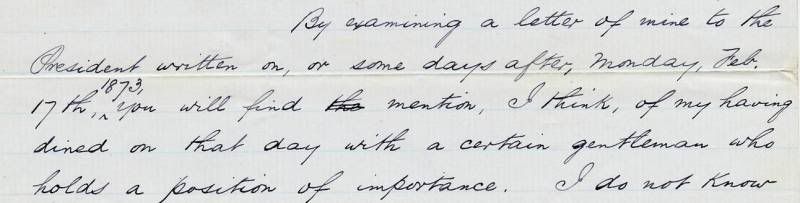 By examining a letter of mine to the
President written on, or some days after, Monday, Feb.
17th, 1873, you will find the mention, I think, of my having
dined on that day with a certain gentleman who
holds a position of importance. I do not know